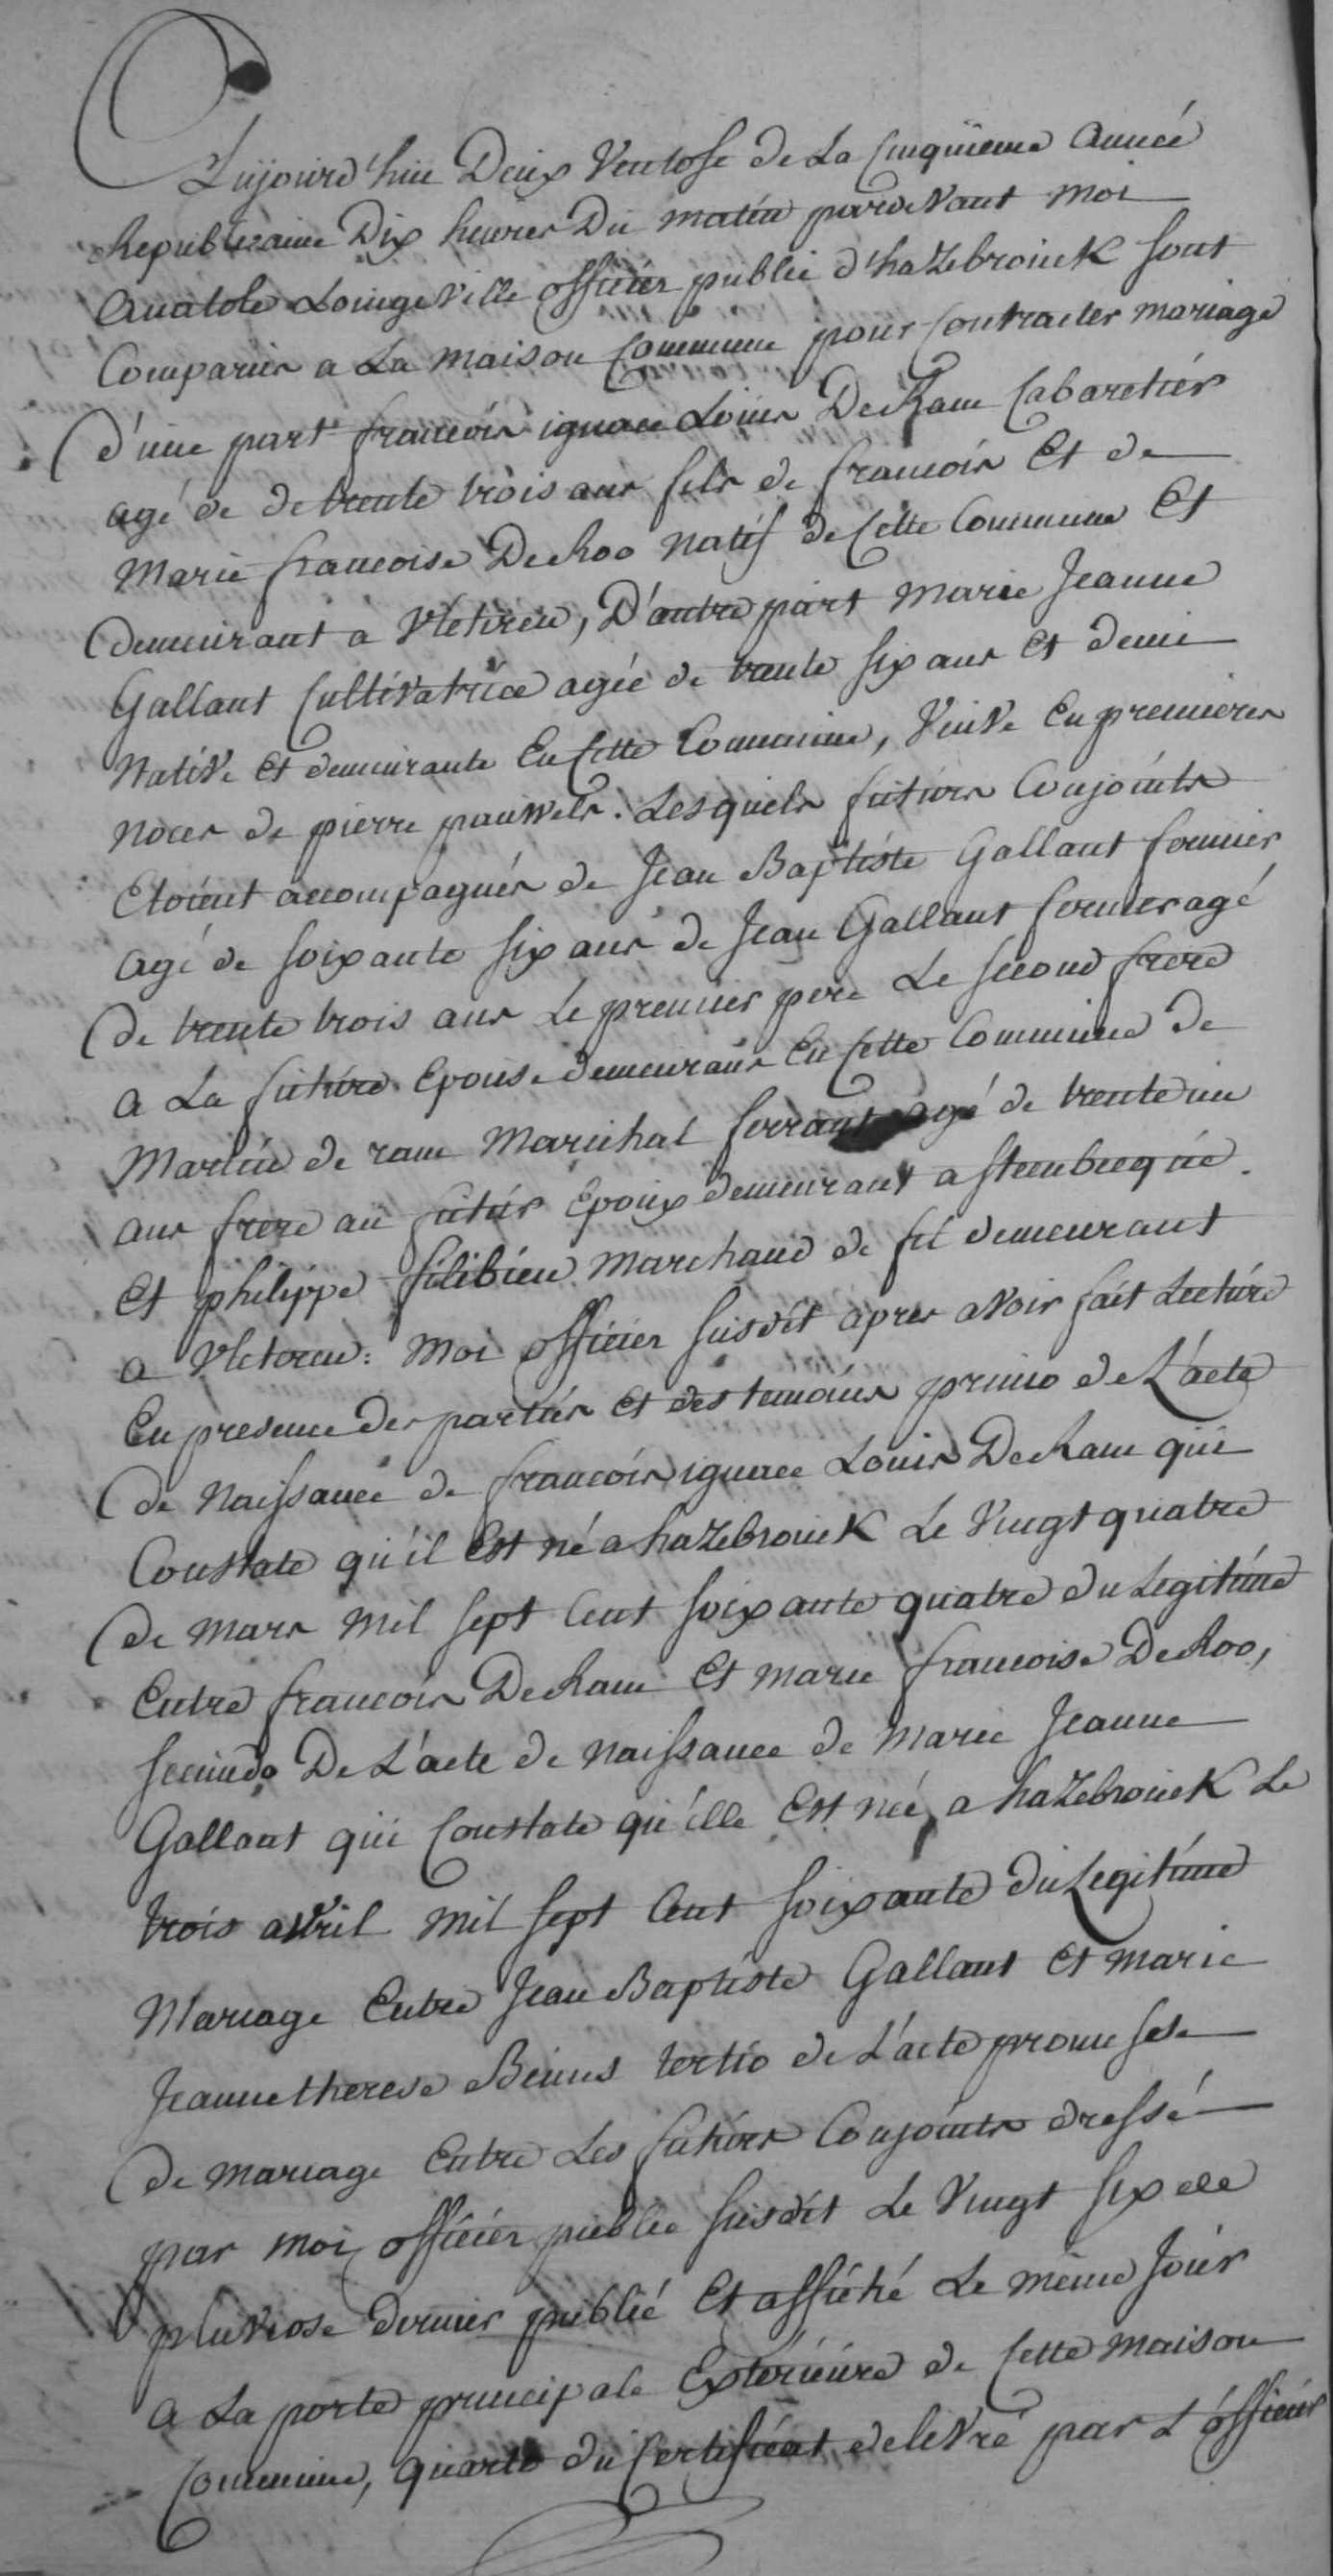 Aujourd'hui Deux Ventose de La Cinquieme année
Republicaine Dix heures Du matin pardevant moi
Anatole Louis geville officier public d'hazebrouck sont
Comparus a La maison Commune pour Contracter mariage
d'une part francois ignace Louis DeRam Cabaretier
agé de de trente trois ans fils de francois Et de
Marie francoise DeRoo natif de Cette Commune Et
demeurant a Vletiren, D'autre part Marie Jeanne
Gallant Cultivatrice agée de trente six ans Et demi
Native Et demeurante En Cette Commune, Veuve En premieres
noces de pierre pauwels. Lesquels futurs Conjoints
Etoient accompagnés de Jean Baptiste Gallant fermier
agé de soixante six ans de Jean Gallant fermier agé
de trente trois ans Le premier pere Le second frere
a La future Epouse demeurans En Cette Commune de
Martin de ram Marichal ferrant agé de trente un
ans frere au futur Epoux demeurant a steenbecque
Et philippe filibien marchand de fil demeurant
a Vleteren: Moi officier susdit apres avoir fait Lecture
En presence des parties Et des temoins primo de L'acte
de Naissance de francois ignace Louis DeRam qui
Constate qu'il Est né a hazebrouck Le Vingt quatre
de mars mil sept Cent soixante quatre du Legitime
Entre francois DeRam Et marie francoise DeRoo,
secundo De L'acte de naissance de Marie Jeanne
Gallant qui Constate qu'elle Est née a hazebrouck Le
trois avril mil sept Cent soixante du Legitime
Mariage Entre Jean Baptiste Gallant Et Marie
Jeanne therese tertio de L'acte promesse
de mariage Entre Les futurs Conjoints dressé
par moi officier public susdit Le Vingt six de
pluviose dernier publié Et affiché Le même Jour
a La porte principale Exterieure de Cette maison
Commune, quarto du Certificat delivré par L'officier